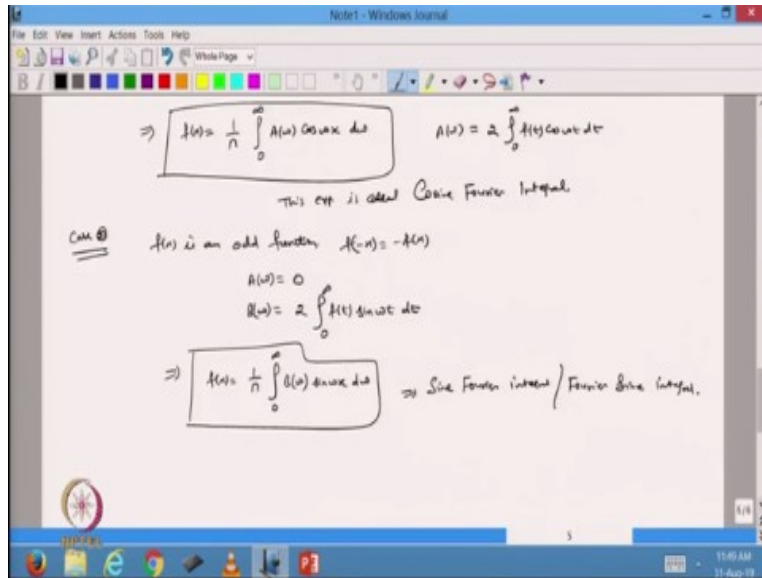 Note1 - Windows Journal
File Edit View Insert Actions Tools Help
Whole Page
B I
⇒ f(x) = 1/π ∫₀^∞ A(ω) Cos ωx dω A(ω) = 2 ∫₀^∞ f(t) Cos ωt dt
This exp is called Cosine Fourier Integral.
Case ② f(x) is an odd function f(-x) = -f(x)
A(ω) = 0
B(ω) = 2 ∫₀^∞ f(t) sin ωt dt
⇒ f(x) = 1/π ∫₀^∞ B(ω) sin ωx dω ⇒ Sine Fourier integral / Fourier Sine integral.
NPTEL
5
11:49 AM
31-Aug-19